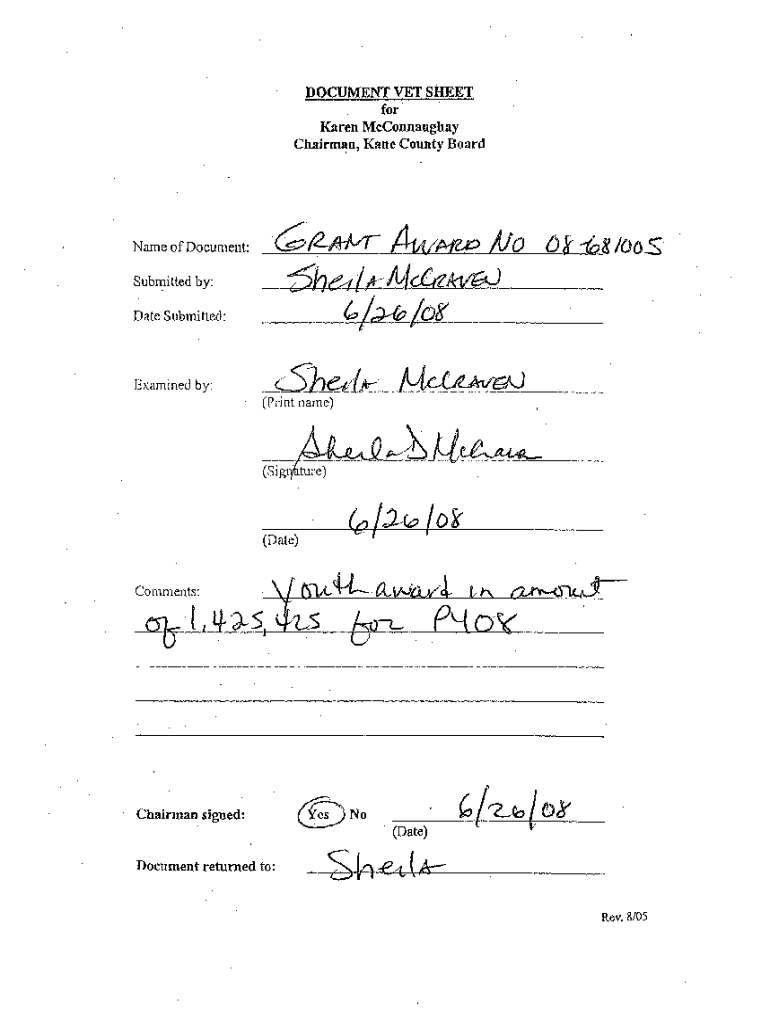 DOCUMENT VET SHEET
for
Karen McConnaughay
Chairman, Kane County Board
Name of Document: GRANT AWARD NO 08-681005
Submitted by: Sheila McCRAVEN
Date Submitted: 6/26/08
Examined by: Sheila McCRAVEN
(Print name)
Sheila D McCraven
(Signature)
6/26/08
(Date)
Comments: Youth award in amount
of 1,425,425 for PY08
Chairman signed: Yes No 6/26/08
(Date)
Document returned to: Sheila
Rev. 8/05